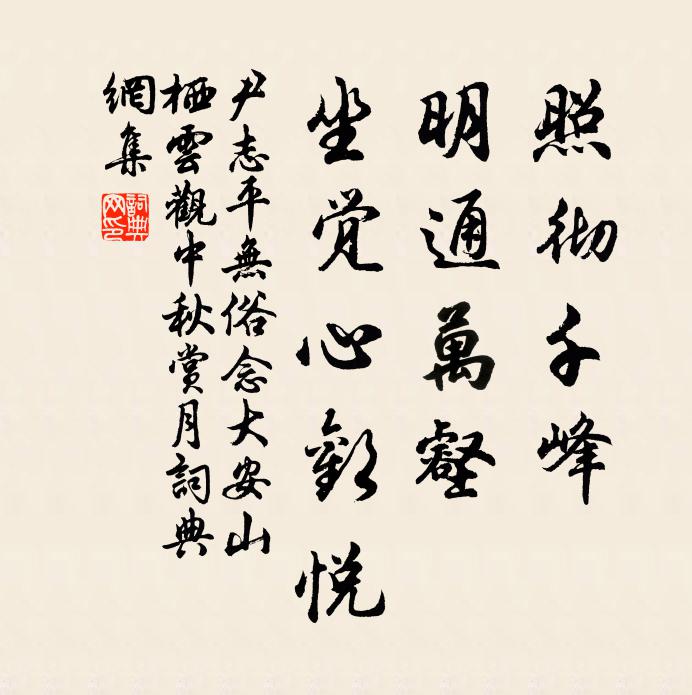 照彻千峰
明通萬壑
坐觉心歡悦
尹志平無俗念大安山
栖雲觀中秋賞月詞典
網集
詞典网印